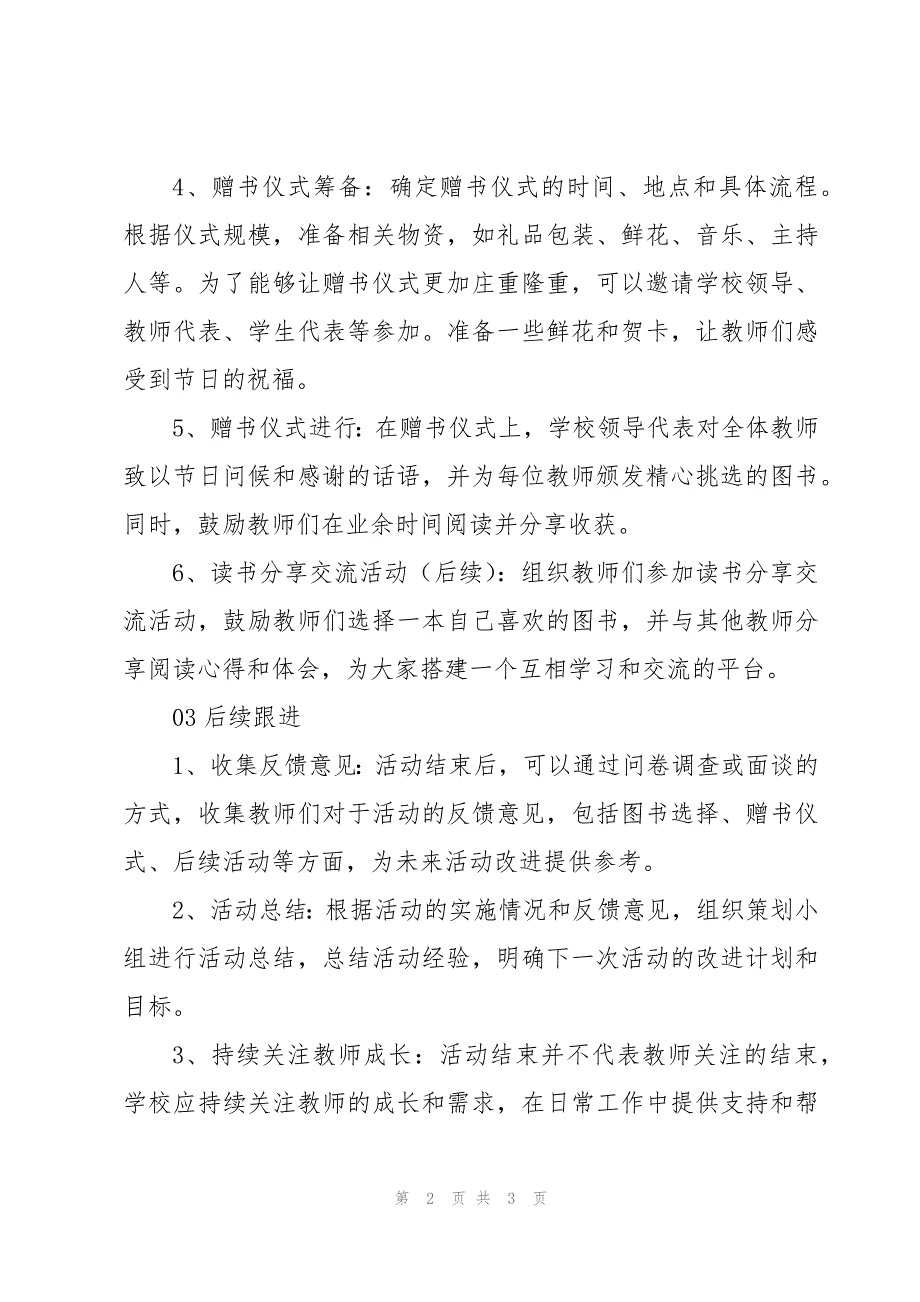 4、赠书仪式筹备：确定赠书仪式的时间、地点和具体流程。
根据仪式规模，准备相关物资，如礼品包装、鲜花、音乐、主持
人等。为了能够让赠书仪式更加庄重隆重，可以邀请学校领导、
教师代表、学生代表等参加。准备一些鲜花和贺卡，让教师们感
受到节日的祝福。
5、赠书仪式进行：在赠书仪式上，学校领导代表对全体教师
致以节日问候和感谢的话语，并为每位教师颁发精心挑选的图书。
同时，鼓励教师们在业余时间阅读并分享收获。
6、读书分享交流活动（后续）：组织教师们参加读书分享交
流活动，鼓励教师们选择一本自己喜欢的图书，并与其他教师分
享阅读心得和体会，为大家搭建一个互相学习和交流的平台。
03 后续跟进
1、收集反馈意见：活动结束后，可以通过问卷调查或面谈的
方式，收集教师们对于活动的反馈意见，包括图书选择、赠书仪
式、后续活动等方面，为未来活动改进提供参考。
2、活动总结：根据活动的实施情况和反馈意见，组织策划小
组进行活动总结，总结活动经验，明确下一次活动的改进计划和
目标。
3、持续关注教师成长：活动结束并不代表教师关注的结束，
学校应持续关注教师的成长和需求，在日常工作中提供支持和帮
第 2 页 共 3 页